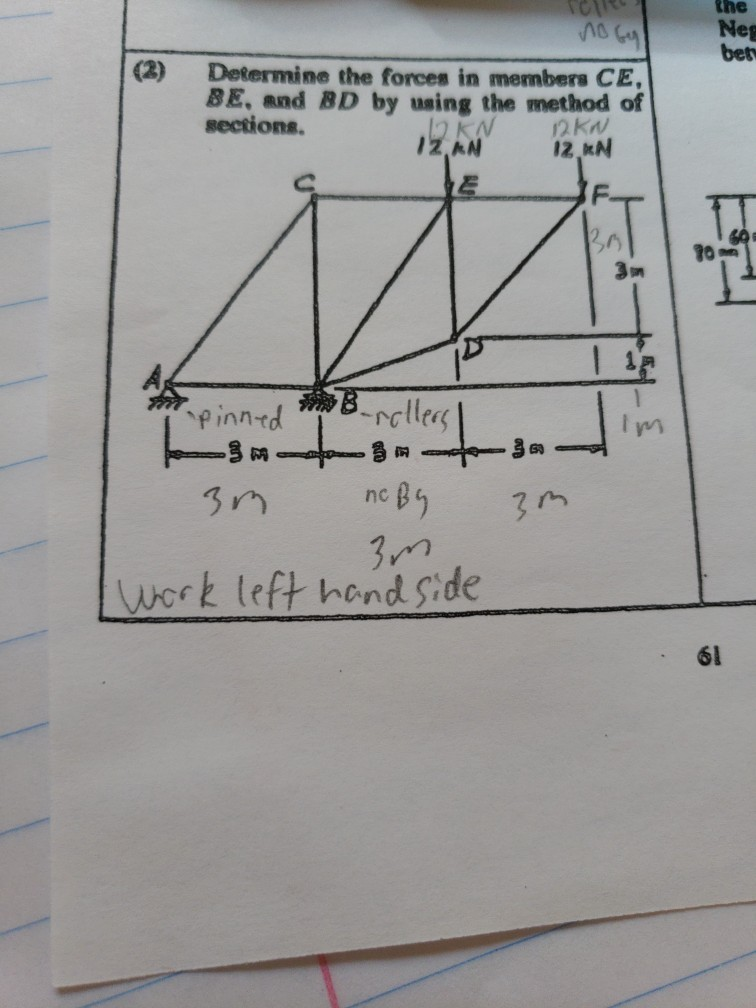 no Gy
the
Neg
(2) Determine the forces in members CE,
BE, and BD by using the method of
sections.
12 KN 12 KN
12 kN 12 kN
C E F
3m
3 m
D
1 m
A B
-pinned -rollers
1m
3 m 3 m 3 m
3m no By 3m
3m
Work left hand side
61